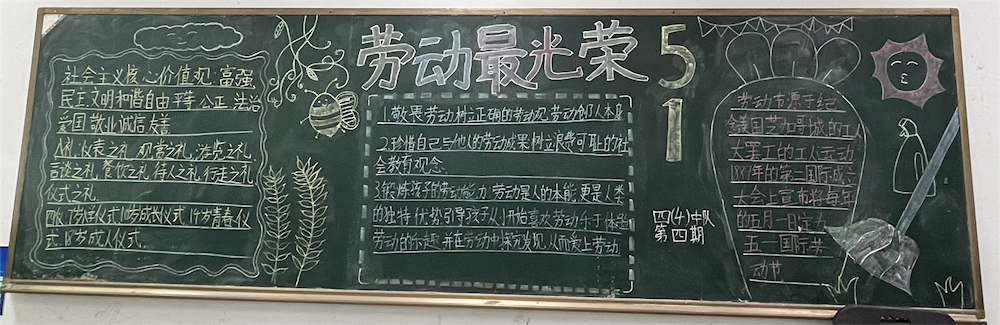 社会主义核心价值观:富强、
民主、文明、和谐、自由、平等、公正、法治
爱国、敬业、诚信、友善
八例:仪表之礼、观赏之礼、游览之礼
言谈之礼、餐饮之礼、待人之礼、行走之礼
仪式之礼
四队:7岁入学仪式、10岁成长仪式、14岁青春仪
式、18岁成人仪式.
劳动最光荣
1.敬畏劳动,树立正确的劳动观,劳动创人本身
2.珍惜自己与他人的劳动成果,树立浪费可耻的社
会教育观念.
3.锻炼孩子的劳动能力,劳动是人的本能,更是人类
的独特优势,引导孩子从小开始喜欢劳动,乐于体验
劳动的乐趣,并在劳动中探究发现,从而爱上劳动.
四(4)中队
第四期
5
1
劳动节源于纪
美国芝加哥城的工人
大罢工的工人运动
1889年的第二国际成立
大会上宣布将每年
的五月一日定为
五一国际劳
动节